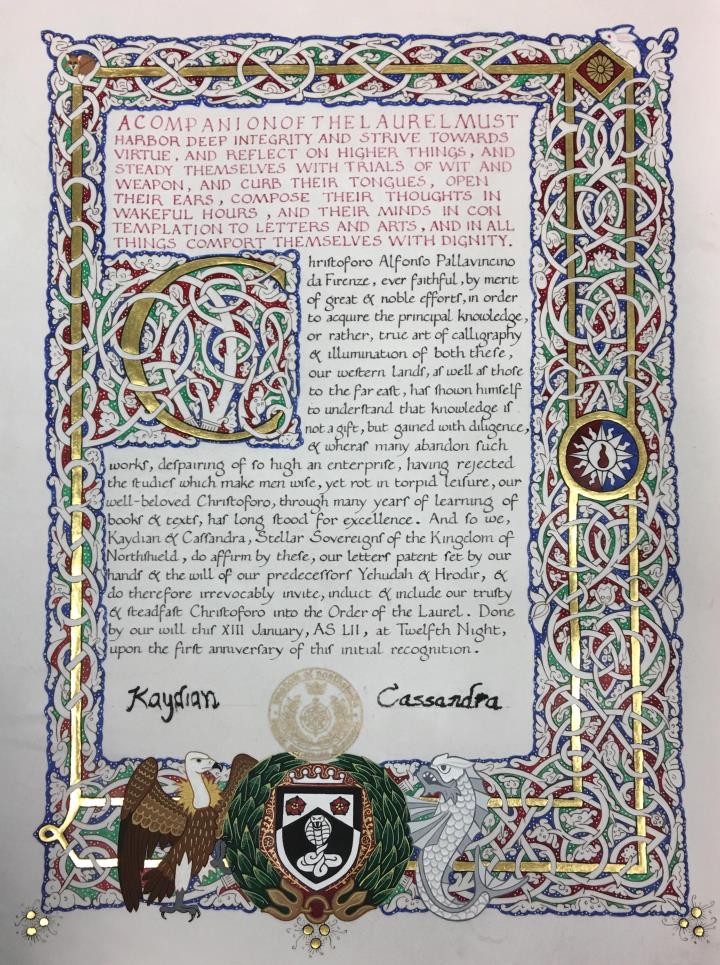 A COMPANION OF THE LAUREL MUST
HARBOR DEEP INTEGRITY AND STRIVE TOWARDS
VIRTUE, AND REFLECT ON HIGHER THINGS, AND
STEADY THEMSELVES WITH TRIALS OF WIT AND
WEAPON, AND CURB THEIR TONGUES, OPEN
THEIR EARS, COMPOSE THEIR THOUGHTS IN
WAKEFUL HOURS, AND THEIR MINDS IN CON
TEMPLATION TO LETTERS AND ARTS, AND IN ALL
THINGS COMPORT THEMSELVES WITH DIGNITY.
Chriſtoforo Alfonſo Pallavincino
da Firenze, ever faithful, by merit
of great & noble efforts, in order
to acquire the principal knowledge,
or rather, true art of calligraphy
& illumination of both theſe,
our weſtern lands, aſ well aſ thoſe
to the far eaſt, haſ ſhown himſelf
to underſtand that knowledge iſ
not a gift, but gained with diligence,
& wheraſ many abandon ſuch
workſ, deſpairing of ſo high an enterpriſe, having rejected
the ſtudieſ which make men wiſe, yet rot in torpid leiſure, our
well-beloved Chriſtoforo, through many yearſ of learning of
bookſ & textſ, haſ long ſtood for excellence. And ſo we,
Kaydian & Caſſandra, Stellar Sovereignſ of the Kingdom of
Northſhield, do affirm by theſe, our letterſ patent ſet by our
handſ & the will of our predeceſſorſ Yehudah & Hrodir, &
do therefore irrevocably invite, induct & include our truſty
& ſteadfaſt Chriſtoforo into the Order of the Laurel. Done
by our will thiſ XIII January, AS LII, at Twelfth Night,
upon the firſt anniverſary of thiſ initial recognition.
Kaydian
Cassandra